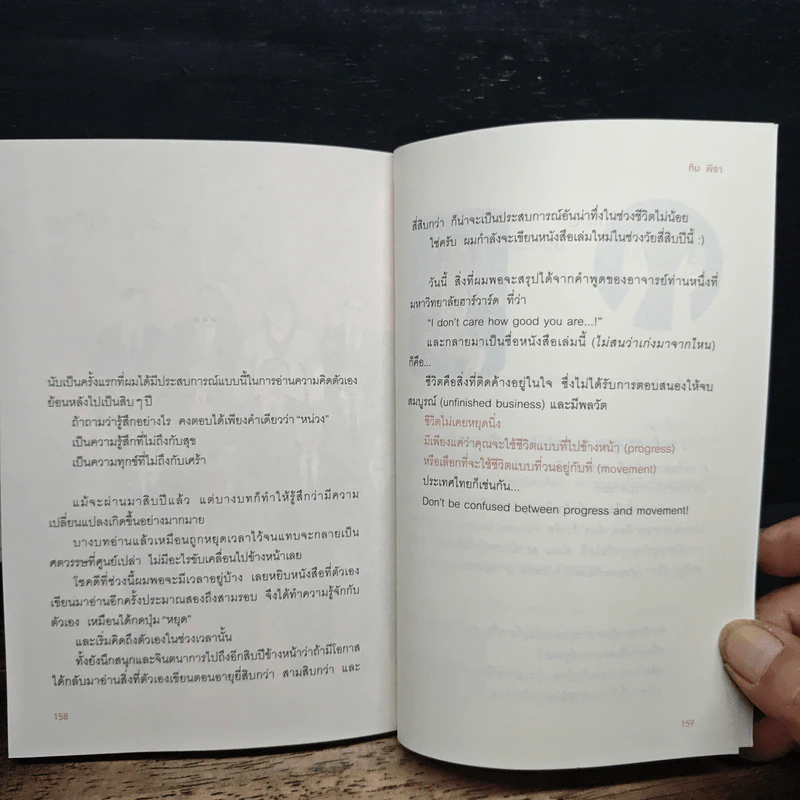 นับเป็นครั้งแรกที่ผมได้มีประสบการณ์แบบนี้ในการอ่านความคิดตัวเอง
ย้อนหลังไปเป็นสิบๆ ปี
ถ้าถามว่ารู้สึกอย่างไร คงตอบได้เพียงคำเดียวว่า "หน่วง"
เป็นความรู้สึกที่ไม่ถึงกับสุข
เป็นความทุกข์ที่ไม่ถึงกับเศร้า
แม้จะผ่านมาสิบปีแล้ว แต่บางบทก็ทำให้รู้สึกว่ามีความ
เปลี่ยนแปลงเกิดขึ้นอย่างมากมาย
บางบทอ่านแล้วเหมือนถูกหยุดเวลาไว้จนแทบจะกลายเป็น
ศตวรรษที่ศูนย์เปล่า ไม่มีอะไรขับเคลื่อนไปข้างหน้าเลย
โชคดีที่ช่วงนี้ผมพอจะมีเวลาอยู่บ้าง เลยหยิบหนังสือที่ตัวเอง
เขียนมาอ่านอีกครั้งประมาณสองถึงสามรอบ จึงได้ทำความรู้จักกับ
ตัวเอง เหมือนได้กดปุ่ม "หยุด"
และเริ่มคิดถึงตัวเองในช่วงเวลานั้น
ทั้งยังนึกสนุกและจินตนาการไปถึงอีกสิบปีข้างหน้าว่าถ้ามีโอกาส
ได้กลับมาอ่านสิ่งที่ตัวเองเขียนตอนอายุยี่สิบกว่า สามสิบกว่า และ
158
ทิม พิธา
สี่สิบกว่า ก็น่าจะเป็นประสบการณ์อันน่าทึ่งในช่วงชีวิตไม่น้อย
ใช่ครับ ผมกำลังจะเขียนหนังสือเล่มใหม่ในช่วงวัยสี่สิบปีนี้ :)
วันนี้ สิ่งที่ผมพอจะสรุปได้จากคำพูดของอาจารย์ท่านหนึ่งที่
มหาวิทยาลัยฮาร์วาร์ด ที่ว่า
"I don't care how good you are...!"
และกลายมาเป็นชื่อหนังสือเล่มนี้ (ไม่สนว่าเก่งมาจากไหน)
ก็คือ...
ชีวิตคือสิ่งที่ติดค้างอยู่ในใจ ซึ่งไม่ได้รับการตอบสนองให้จบ
สมบูรณ์ (unfinished business) และมีพลวัต
ชีวิตไม่เคยหยุดนิ่ง
มีเพียงแค่ว่าคุณจะใช้ชีวิตแบบที่ไปข้างหน้า (progress)
หรือเลือกที่จะใช้ชีวิตแบบที่วนอยู่กับที่ (movement)
ประเทศไทยก็เช่นกัน...
Don't be confused between progress and movement!
159